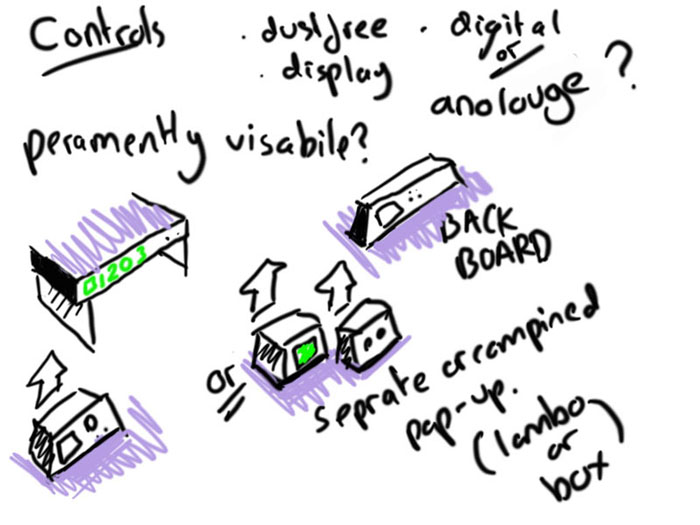 Controls
. dustfree
. display
. digital
or
anolouge ?
peramently visabile?
BACK
BOARD
01203
or
seprate or compined
pop-up.
(lambo
or
box)